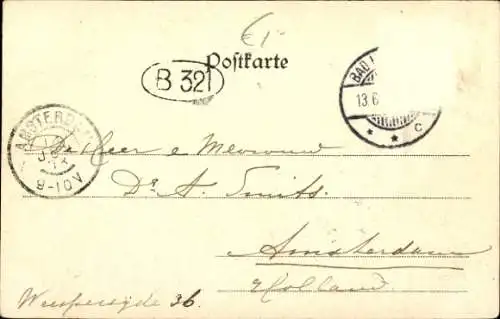 €1-
Postkarte
B 321
BAD
13.6
* * c
AMSTERDAM
8-10V
De Heer e Mevrouw
Dr. A. Smits.
Amsterdam
Holland.
Weesperzijde 36.